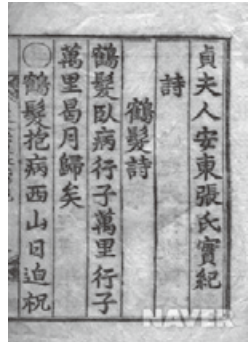 貞夫人安東張氏實紀
詩
鶴髮詩
鶴髮臥病行子萬里行子
萬里曷月歸矣
鶴髮抱病西山日迫祝
NAVER